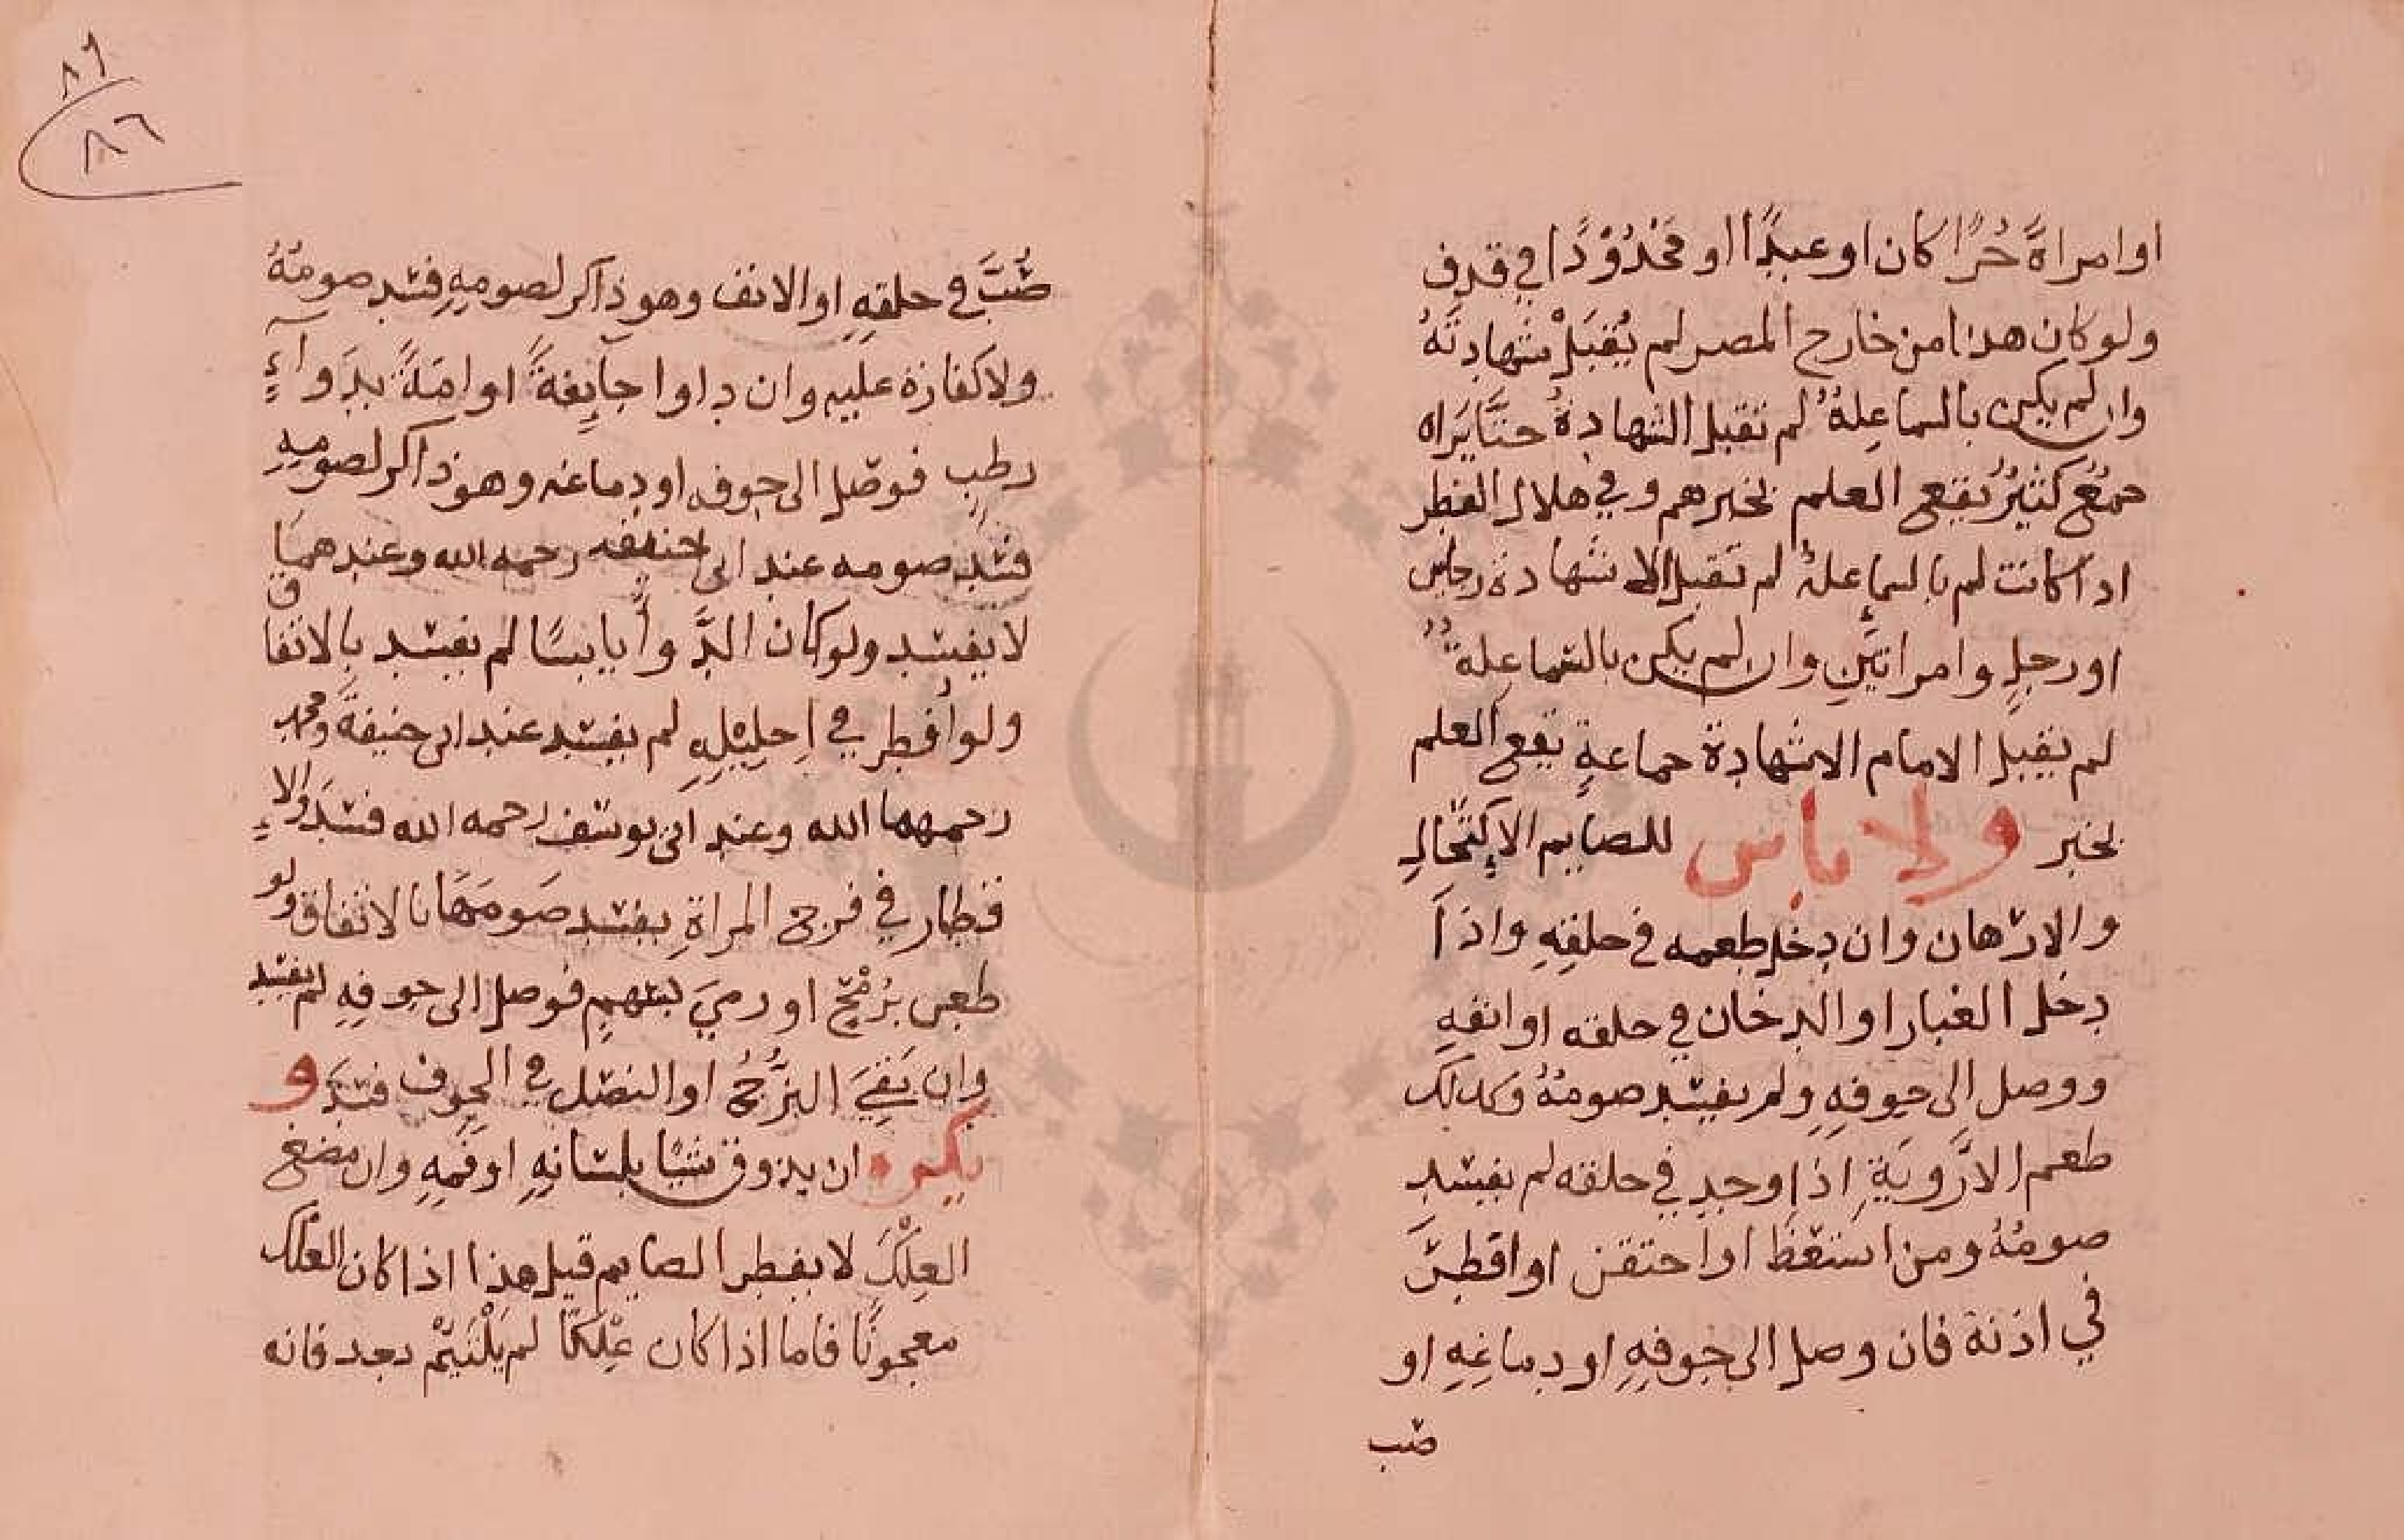 او امراةً حُرًّا كان او عبدًا او مَحْدُوْدًا في قذف
ولو كان هذا من خارج المصر لم يُقبَلْ شهادتهُ
وان لم يكن بالسما عِلةٌ لم تقبل الشهادةُ حتَّا يَراه
جمعٌ كثيرٌ يقع العلم بخبرهم وفي هلال الفطر
اذا كانت لم بالسماء علةٌ لم تقبل الا شهادة رجلين
او رجلٍ وامراتين وان لم يكن بالسما علةٌ
لم يقبل الامام الا شهادة جماعةٍ يقع العلم
بخبر ولا باس للصايم الاِكتحال
والادهان وان دخل طعمه في حلقهِ واذاَ
دخل الغبار او الدخان في حلقه او انفهِ
ووصل الى جوفهِ ولم يفسد صومهُ وكذلك
طعم الادَّويَةِ اذا وجد في حلقه لم يفسد
صومُهُ ومن استعَظَ او احتقن او اقطرَ
في اذنة فان وصل الى جوفهِ او دماغِهِ او
صب
٨٦
صُبَّ في حلقهِ او الانف وهو ذاكر لصومهِ فسد صومُهُ
ولا كفارة عليه وان داوا جايِفةً او امَةً بدَواءٍ
رطبٍ فوصل الى جوفه او دماغه وهو ذاكر لصومهِ
فسد صومه عند ابى حنيفه رحمه الله وعندهما
لا يفسد ولو كان الدَّواُ يابسًا لم يفسد بالاتفاق
ولو اقطر في اِحلِيْلِهِ لم يفسد عند ابى حنيفةَ ومحمد
رحمهما الله وعند ابى يوسف رحمه الله فسَدَ ولاءٍ
قطار في فرج المراةِ يفسد صَومَهَا بالاتفاق ولو
طعن بُرْمْحٍ او رميَ بسهمٍ فوصل الى جوفهِ لم يفسد
وان بَقِيَ الزُّجُّ او النصل في الجوف فسدَ و
يكره ان يذوق شيًا بلسانهِ او فمِهِ وان مضغ
العِلْكَ لا يفطر الصايم قيل هذا اذا كان العلك
معجونًا فاما اذا كان عِلْكًا لم يَلْتَيْمْ بعد فانه